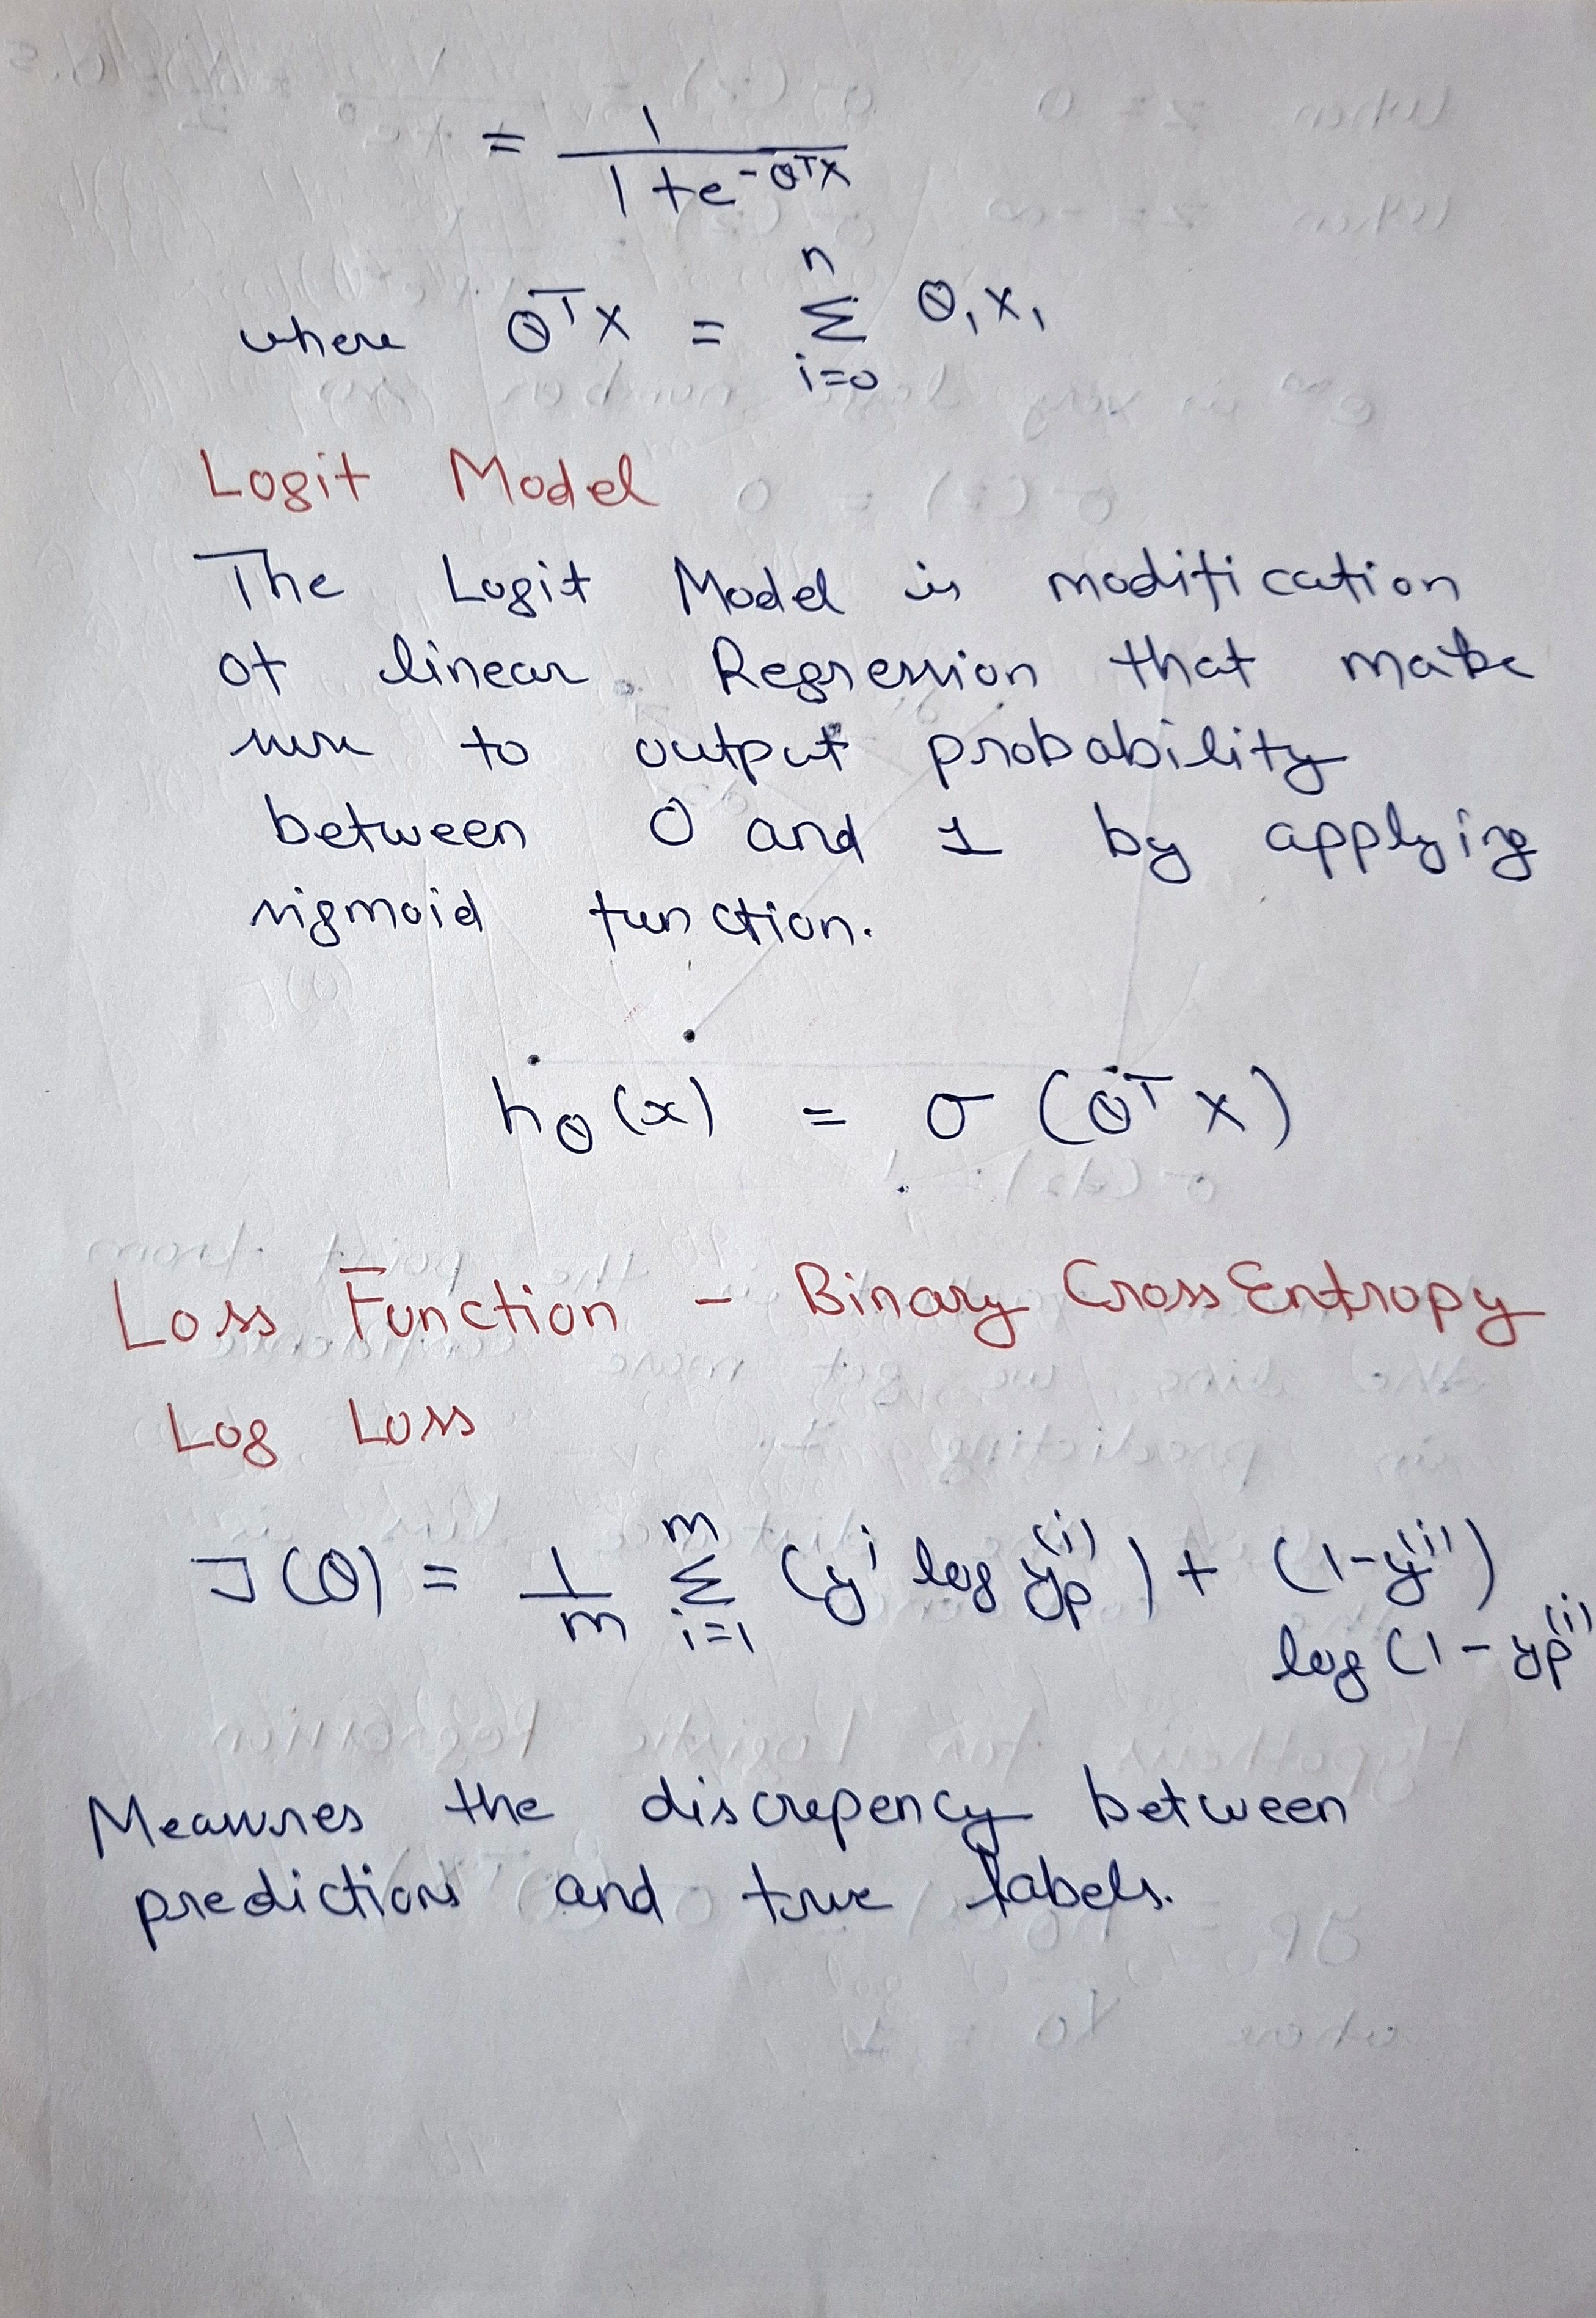 = 1 / 1 + e^-θᵀx
where θᵀx = Σ_{i=0}^{n} θ₁x₁
Logit Model
The Logit Model is modification
of linear Regression that make
sure to output probability
between 0 and 1 by applying
sigmoid function.
h_θ(x) = σ(θᵀx)
Loss Function - Binary Cross Entropy
Log Loss
J(θ) = 1/m Σ_{i=1}^{m} (y^i log y_p^(i)) + (1-y^(i))
log(1-y_p^(i)
Measures the discrepency between
predictions and true labels.